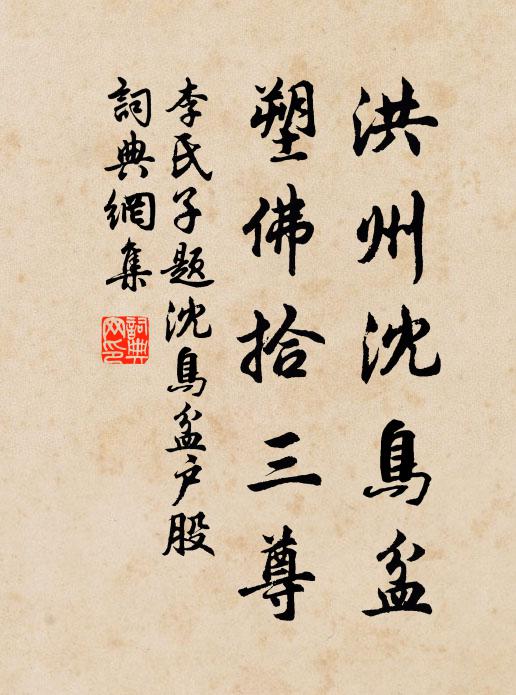 洪州沈鳥盆
塑佛拾三尊
李氏子題沈鳥盆户股
詞典網集
詞典
网印